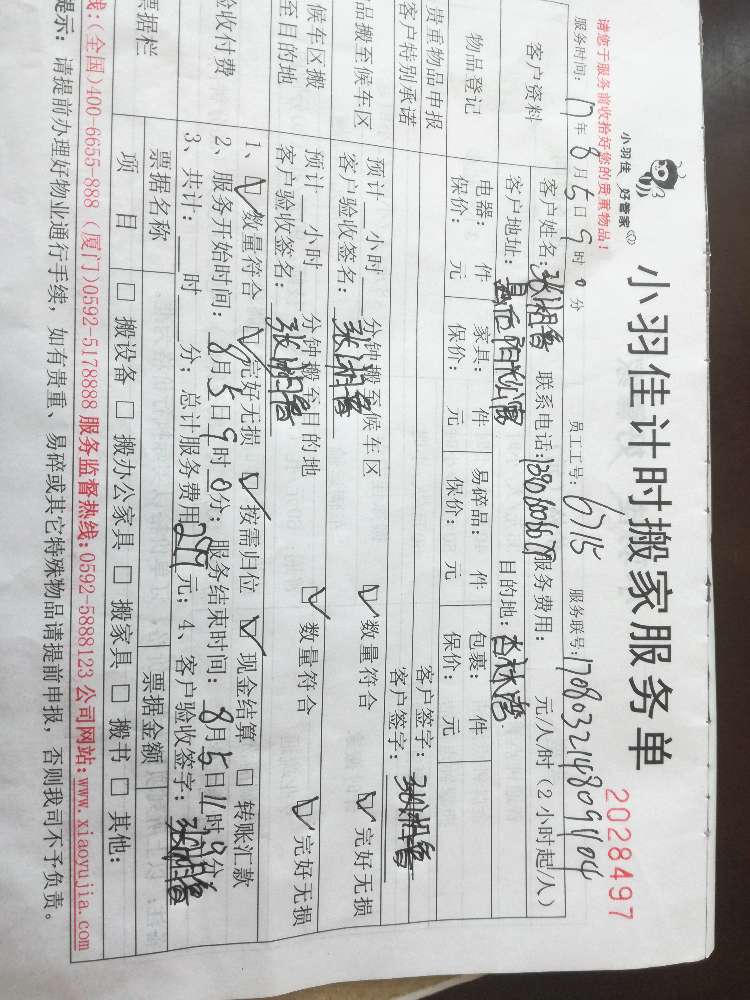 小羽佳 好管家
小羽佳计时搬家服务单
2028497
请您于服务前收拾好您的贵重物品!
服务时间: 17年8月5日9时0分 员工工号: 6715 服务联号: 1708032148091104
客户资料
客户姓名: 联系电话: 服务费用: 元/人/时(2小时起/人)
客户地址: 目的地: 杏林湾
物品登记
电器: 件 家具: 件 易碎品: 件 包裹: 件
保价: 元 保价: 元 保价: 元 保价: 元
贵重物品申报 客户签字:
客户特别承诺 客户签字: 张湘鲁
品搬至候车区
预计__小时__分钟搬至候车区 ☑数量符合 ☑完好无损
客户验收签名: 张湘鲁
候车区搬
至目的地
预计__小时__分钟搬至目的地 ☑数量符合 ☑完好无损
客户验收签名: 张湘鲁
验收付费
1、☑数量符合 ☑完好无损 ☑按需归位 ☑现金结算 □转账汇款
2、服务开始时间: 8月5日9时0分; 服务结束时间: 8月5日11时 分
3、共计: __时__分; 总计服务费用 元; 4、客户验收签字: 张湘鲁
票据栏
票据名称 票据金额
项 目 □搬设备 □搬办公家具 □搬家具 □搬书 □其他:
线:(全国)400-6655-888 (厦门)0592-5178888 服务监督热线:0592-5888123 公司网站:www.xiaoyujia.com
提示: 请提前办理好物业通行手续, 如有贵重、易碎或其它特殊物品请提前申报, 否则我司不予负责。